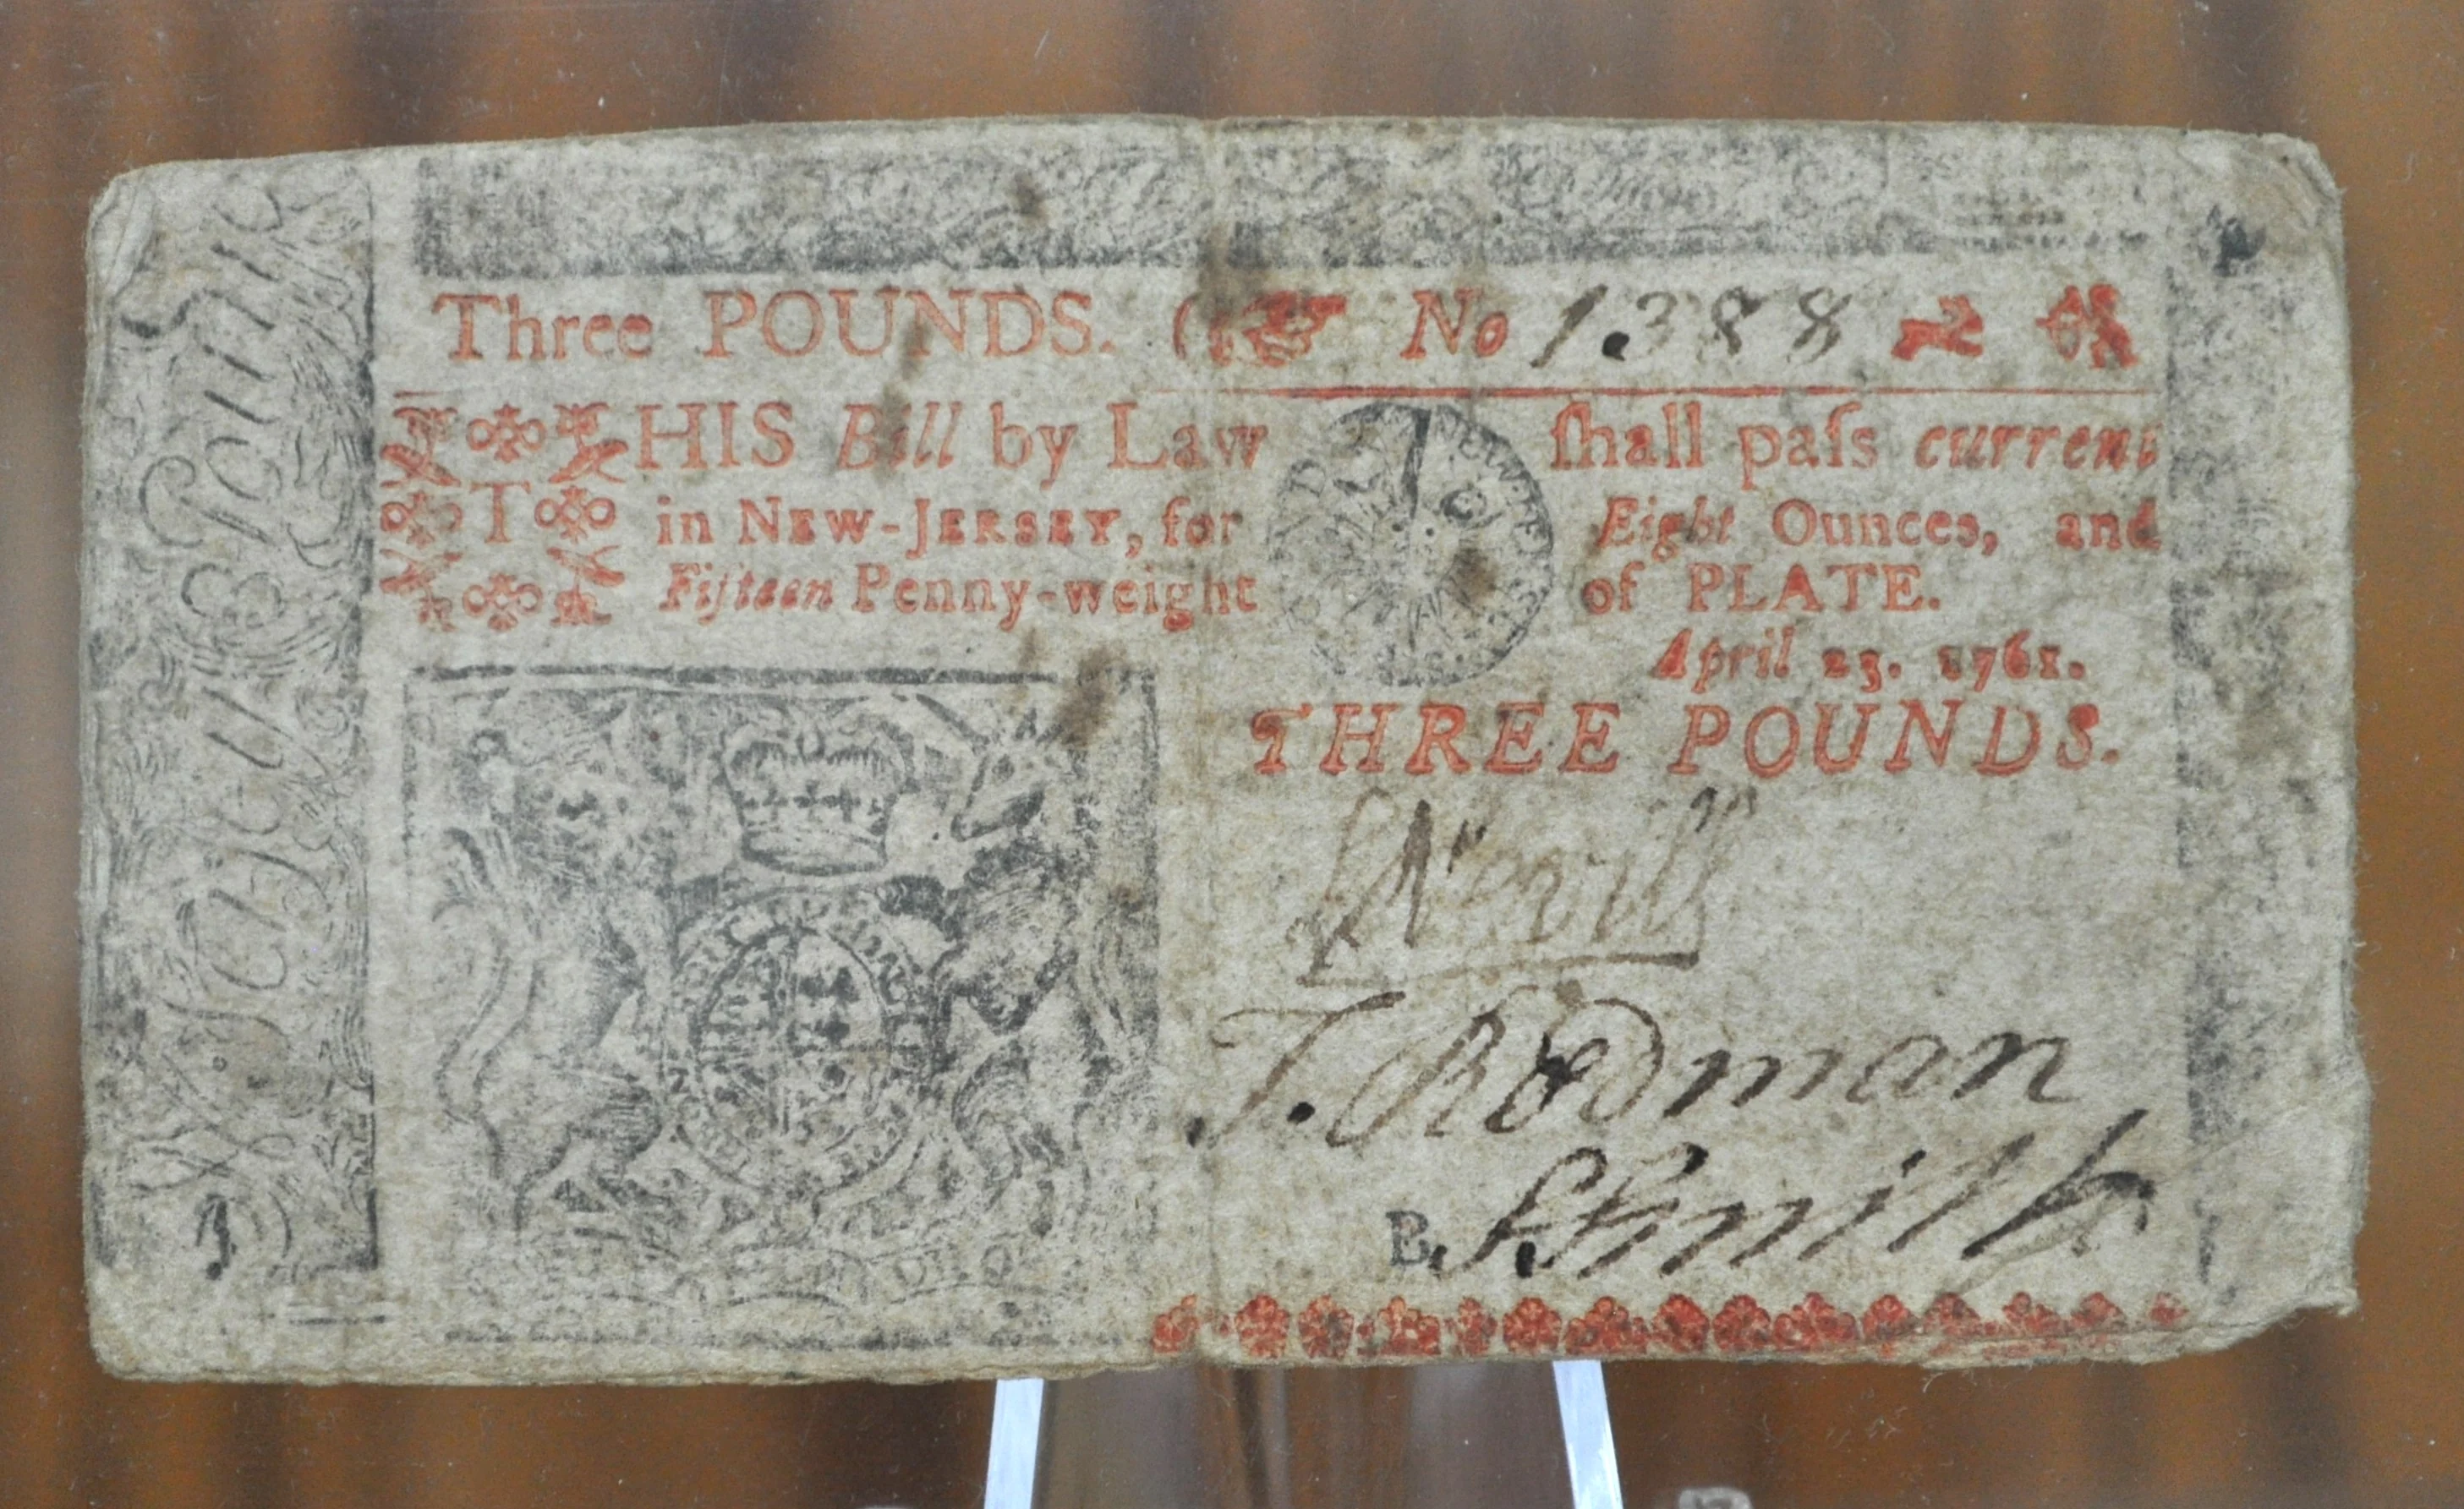 Three POUNDS. ( No 1388
THIS Bill by Law ſhall paſs current
in NEW-JERSEY, for Eight Ounces, and
Fifteen Penny-weight of PLATE.
April 23. 1761.
THREE POUNDS.
S Nevill
T. Rodman
B. S. Smith